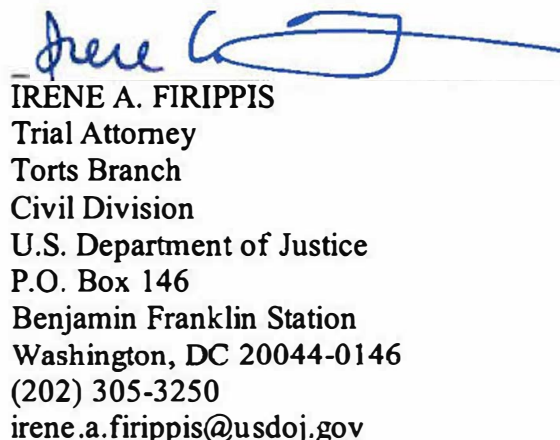 Irene
IRENE A. FIRIPPIS
Trial Attorney
Torts Branch
Civil Division
U.S. Department of Justice
P.O. Box 146
Benjamin Franklin Station
Washington, DC 20044-0146
(202) 305-3250
irene.a.firippis@usdoj.gov